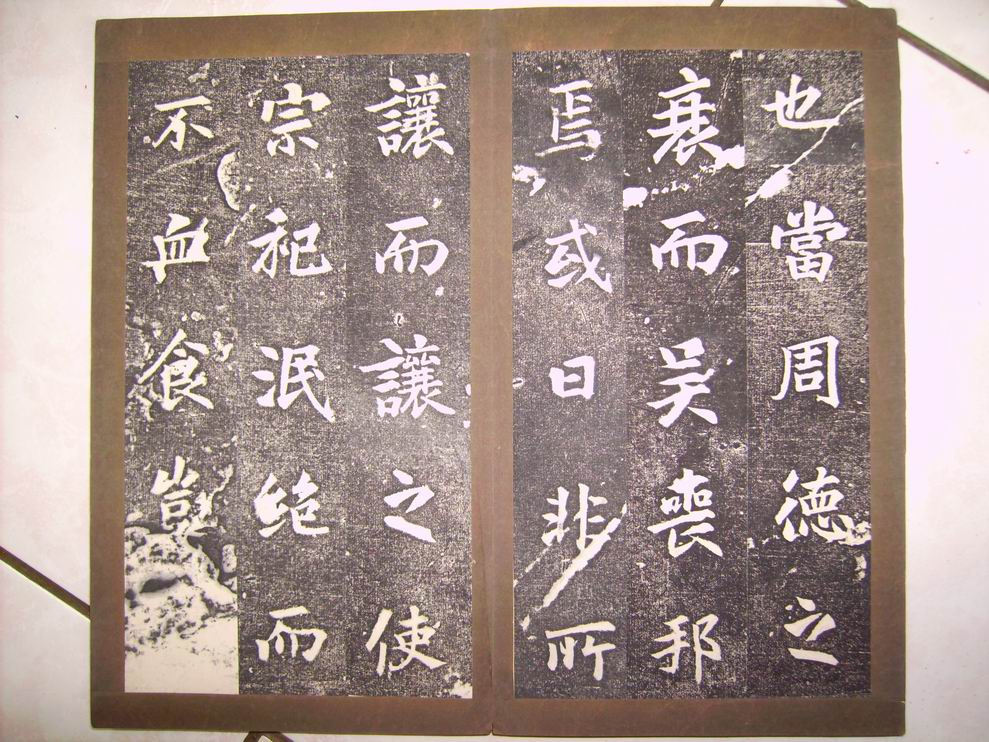 也當周德之
衰而吴喪邦
焉或曰非所
讓而讓之使
宗祀泯絶而
不血食豈